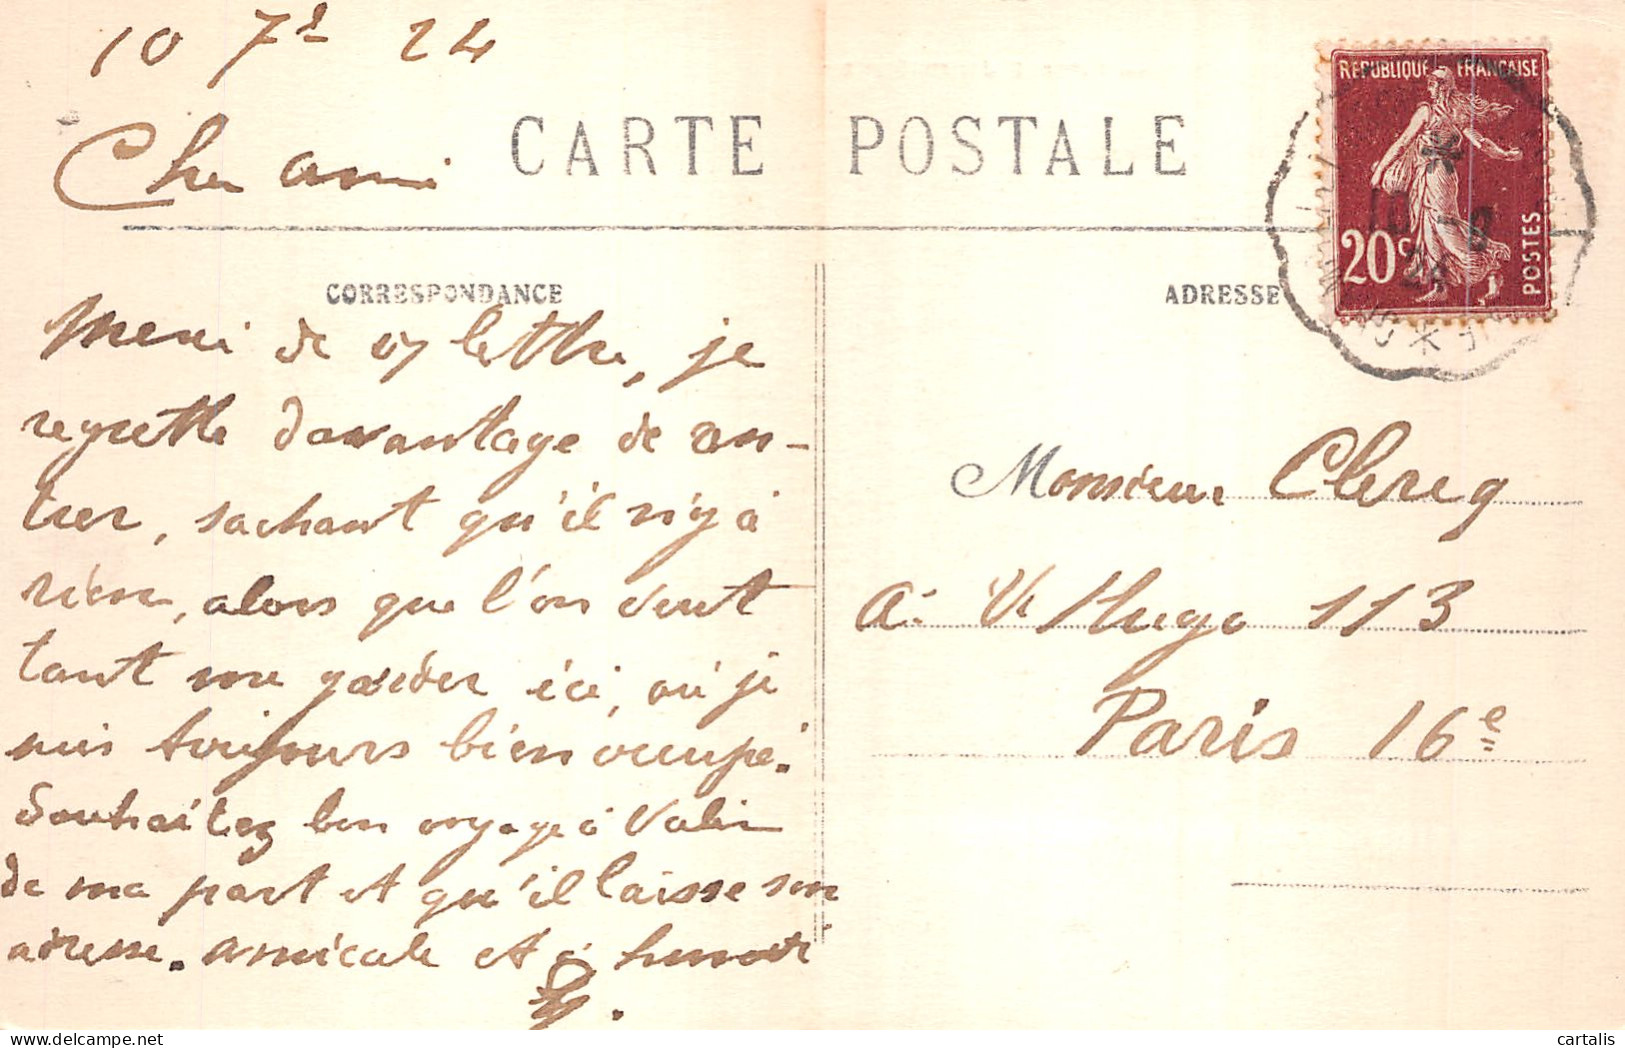 10 7b 24
Cher ami
CARTE POSTALE
REPUBLIQUE FRANÇAISE
20c
POSTES
10 - 9
24
CORRESPONDANCE
ADRESSE
Merci de v/ lettre, je
regrette davantage de ren-
trer, sachant qu'il n'y a
rien, alors que l'on veut
tant me garder ici, où je
suis toujours bien occupé.
Souhaitez bon voyage à
de ma part et qu'il laisse son
adresse. amicale et à
Monsieur Clercq
A. Vr Hugo 113
Paris 16e
cartalis